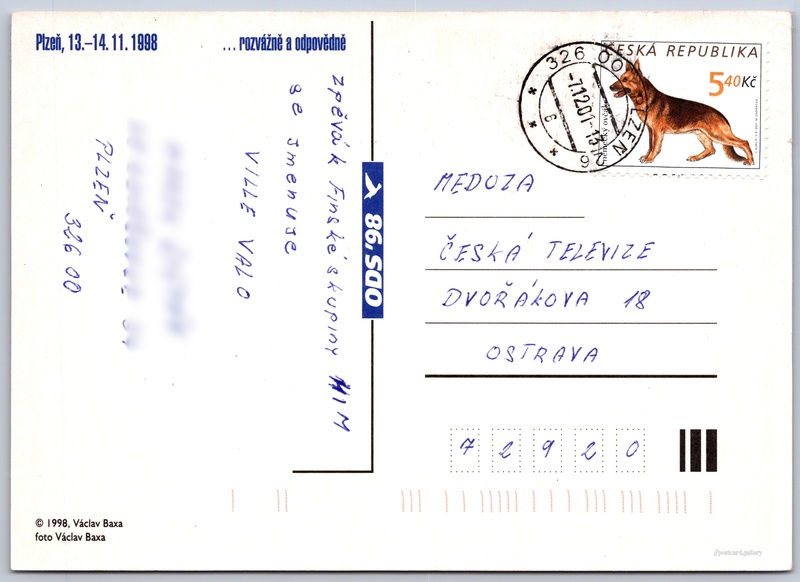 Plzeň, 13.–14. 11. 1998
...rozvážně a odpovědně
zpěvák Finské skupiny HIM
se jmenuje
VILLE VALO
PLZEŇ
326 00
ODS.98
ČESKÁ REPUBLIKA
5,40 Kč
německý ovčák
326 00 PLZEŇ
-7.12.01-13
6
MEDUZA
ČESKÁ TELEVIZE
DVOŘÁKOVA 18
OSTRAVA
7 2 9 2 0
© 1998, Václav Baxa
foto Václav Baxa
//postcard.gallery